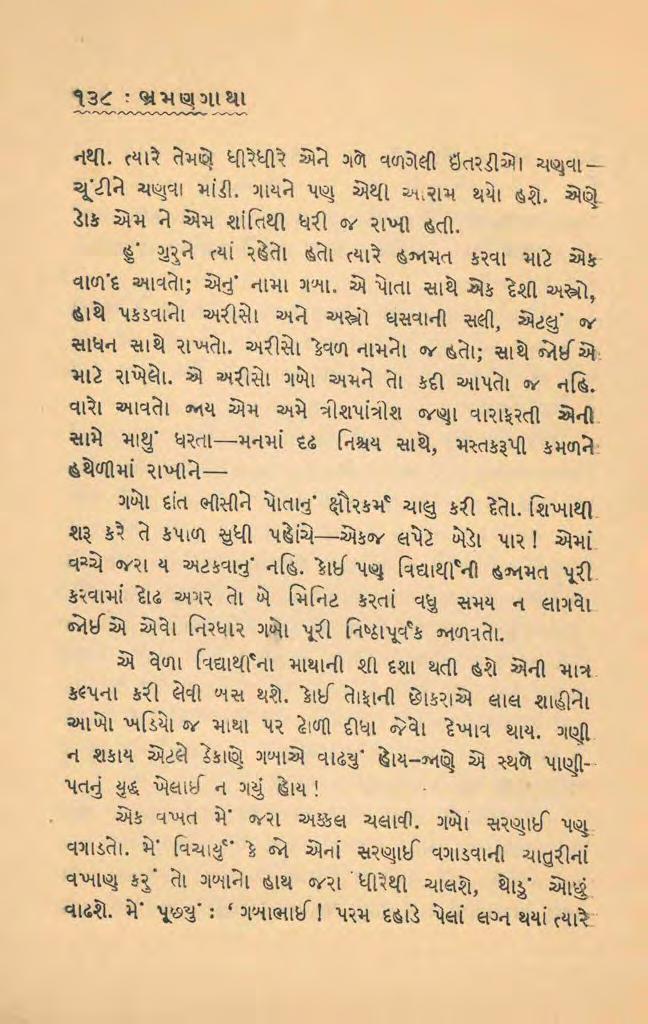 ૧૩૮ : ભ્રમણગાથા
નથી. ત્યારે તેમણે ધીરેધીરે એને ગળે વળગેલી ઇતરડીઓ ચણુવા—
ચૂંટીને ચણવા માંડી. ગાયને પણ એથી આરામ થયો હશે. એણે
ડોક એમ ને એમ શાંતિથી ધરી જ રાખી હતી.
હું ગુરુને ત્યાં રહેતો હતો ત્યારે હજામત કરવા માટે એક
વાળંદ આવતો; એનું નામા ગબા. એ પોતા સાથે એક દેશી અસ્ત્રો,
હાથે પકડવાનો અરીસો અને અસ્ત્રો ઘસવાની સલી, એટલું જ
સાધન સાથે રાખતો. અરીસો કેવળ નામનો જ હતો; સાથે જોઈએ
માટે રાખેલો. એ અરીસો ગબો અમને તો કદી આપતો જ નહિ.
વારો આવતો જાય એમ અમે ત્રીશપાંત્રીશ જણા વારાફરતી એની
સામે માથું ધરતા—મનમાં દૃઢ નિશ્ચય સાથે, મસ્તકરૂપી કમળને
હથેળીમાં રાખીને—
ગબો દાંત ભીસીને પોતાનું ક્ષૌરકર્મ ચાલુ કરી દેતો. શિખાથી
શરૂ કરે તે કપાળ સુધી પહોંચે—એકજ લપેટે બેડો પાર! એમાં
વચ્ચે જરા ય અટકવાનું નહિ. કોઈ પણ વિદ્યાર્થીની હજામત પૂરી
કરવામાં દોઢ અગર તો બે મિનિટ કરતાં વધુ સમય ન લાગવો
જોઈએ એવો નિરધાર ગબો પૂરી નિષ્ઠાપૂર્વક જાળવતો.
એ વેળા વિદ્યાર્થીના માથાની શી દશા થતી હશે એની માત્ર
કલ્પના કરી લેવી બસ થશે. કોઈ તોફાની છોકરાએ લાલ શાહીનો
આખો ખડિયો જ માથા પર ઢોળી દીધા જેવો દેખાવ થાય. ગણી
ન શકાય એટલે ઠેકાણે ગબાએ વાઢ્યું હોય—જાણે એ સ્થળે પાણી-
પતનું યુદ્ધ ખેલાઈ ન ગયું હોય!
એક વખત મેં જરા અક્કલ ચલાવી. ગબો સરણાઈ પણ
વગાડતો. મેં વિચાર્યું કે જો એનાં સરણાઈ વગાડવાની ચાતુરીનાં
વખાણ કરું તો ગબાનો હાથ જરા ધીરેથી ચાલશે, થોડું ઓછું
વાઢશે. મેં પૂછ્યું : ‘ગબાભાઈ! પરમ દહાડે પેલાં લગ્ન થયાં ત્યારે